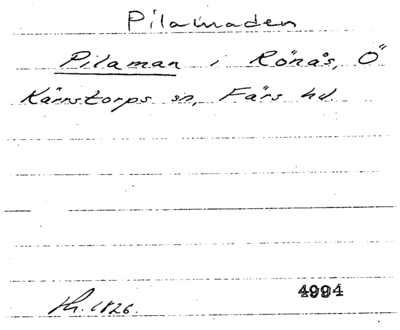 Pilamaden
Pilaman i Rönås, Ö
Kärrstorps sn, Färs hd.
Hh. 1826.
4994